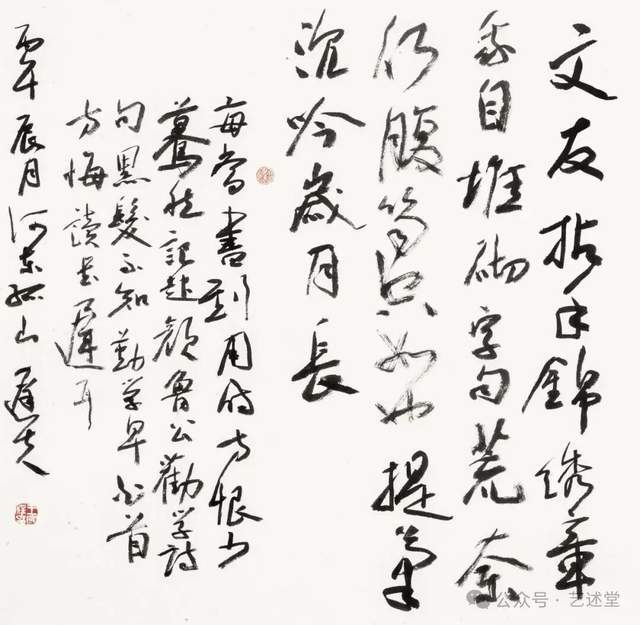 文友抬手錦綉章
我自堆砌字句荒奈
何腹笥只如此提筆
沉吟歲月長
每當書到用時方恨少
驀然記起顏魯公勸學詩
句黑髮不知勤學早白首
方悔讀書遲耳
丙午辰月河東孤山遲夫
公众号·艺述堂